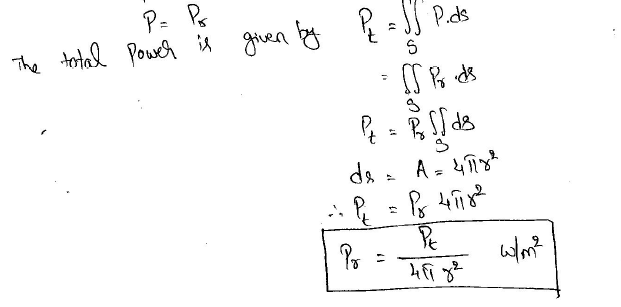 P = Pr
The total power is given by Pt = ∬S P.ds
= ∬S Pr .ds
Pt = Pr ∬S ds
ds = A = 4πr²
∴ Pt = Pr 4πr²
Pr = Pt / 4πr² w/m²